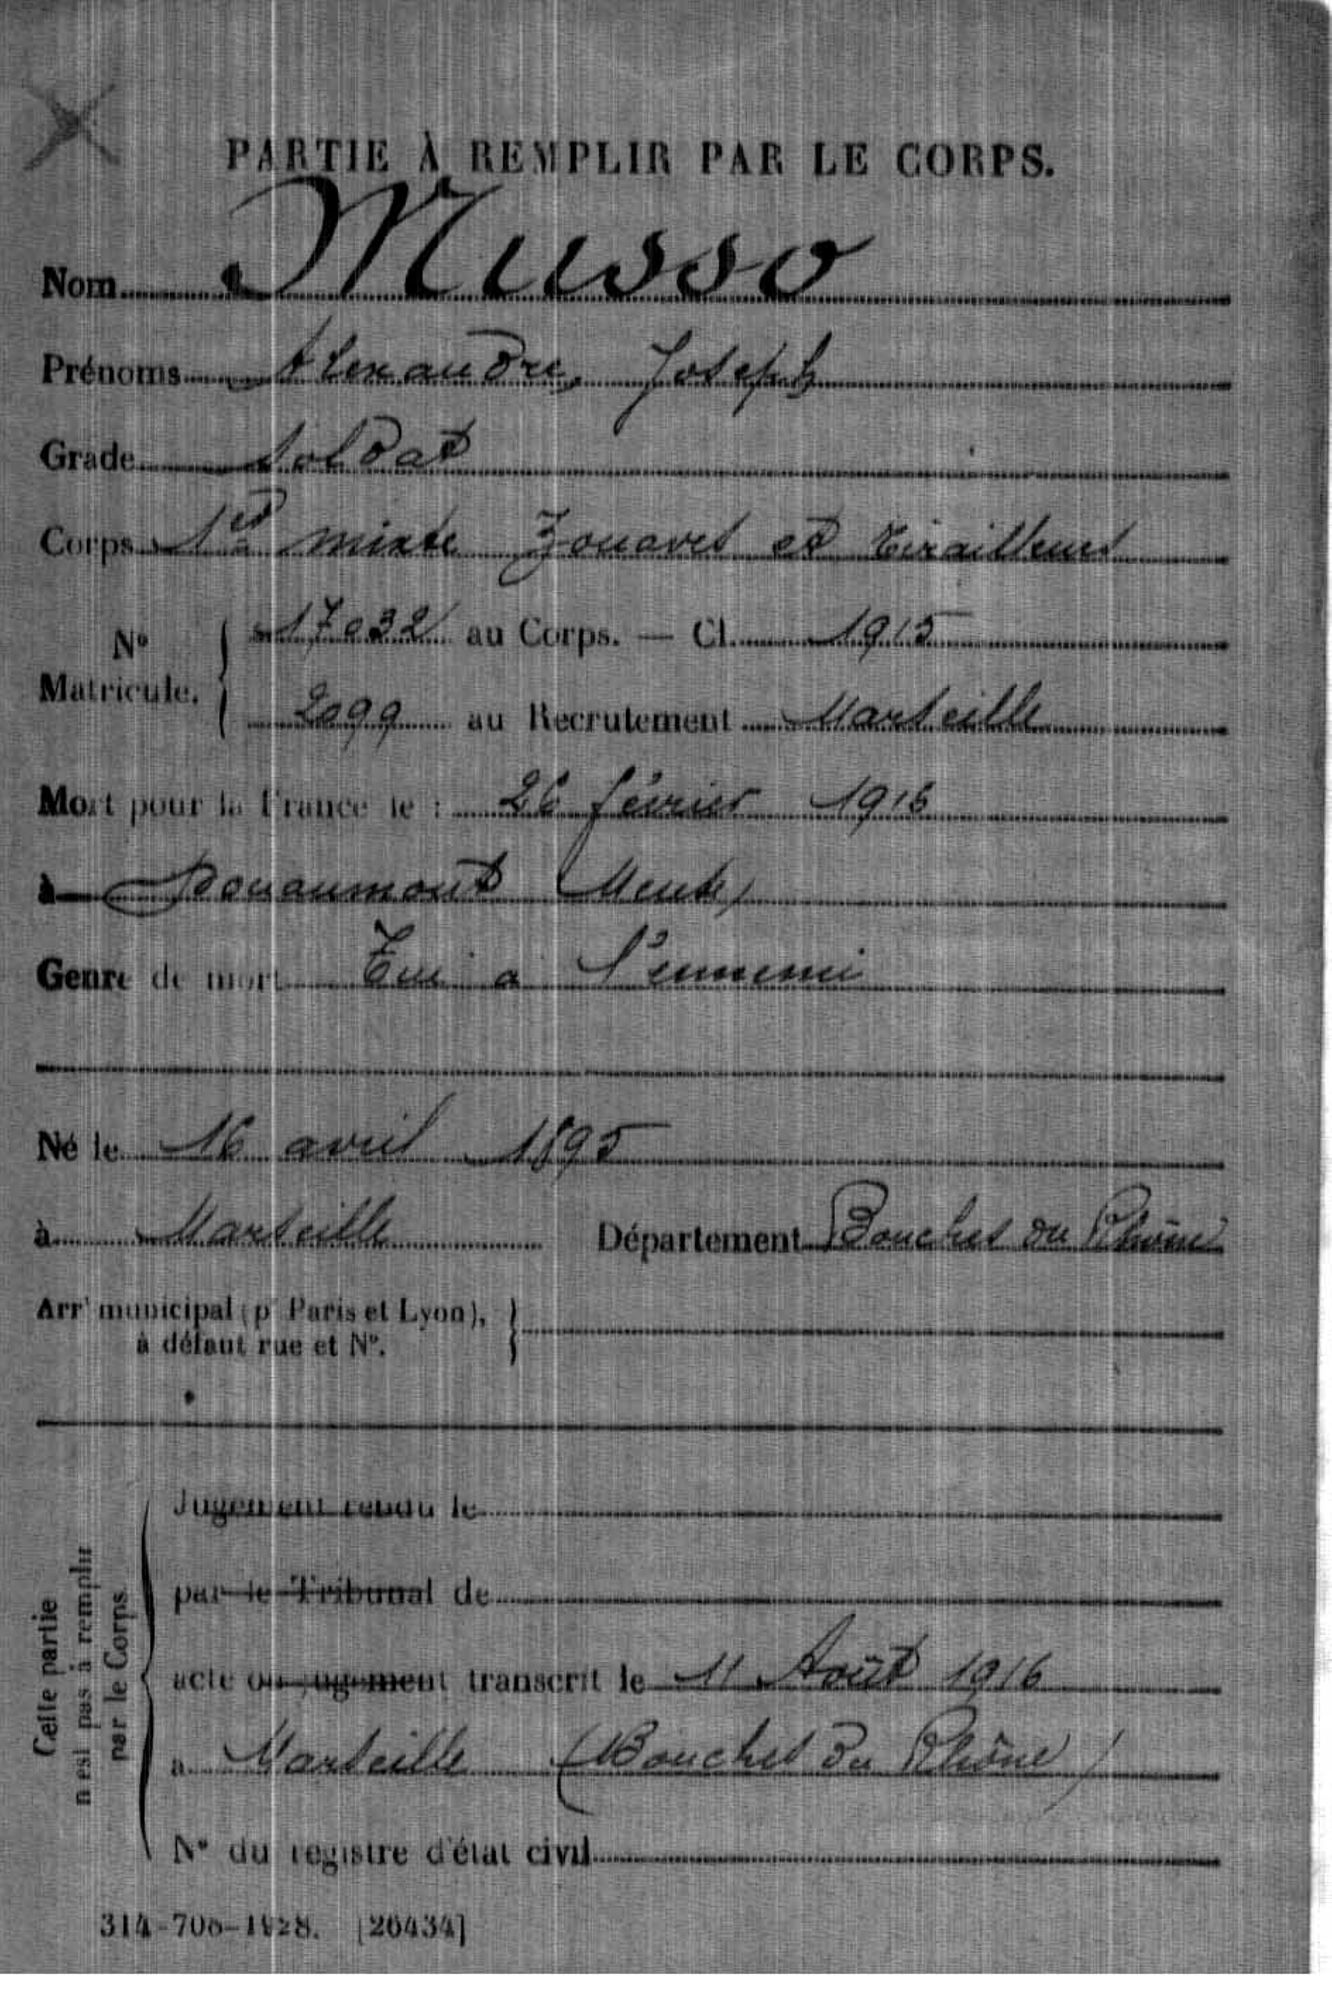 PARTIE À REMPLIR PAR LE CORPS.
Nom Musso
Prénoms Alexandre, Joseph
Grade soldat
Corps 1er mixte Zouaves et tirailleurs
No Matricule. 17032 au Corps. — Cl. 1915
2099 au Recrutement Marseille
Mort pour la France le : 26 février 1916
à Douaumont (Meuse)
Genre de mort Tué a l'ennemi
Né le 16 avril 1895
à Marseille Département Bouches du Rhône
Arrt municipal (pr Paris et Lyon),
à défaut rue et No.
Cette partie
n'est pas à remplir
par le Corps.
Jugement rendu le
par le Tribunal de
acte ou jugement transcrit le 11 Août 1916
à Marseille (Bouches du Rhône)
No du registre d'état civil
314-708-1928. [26434]